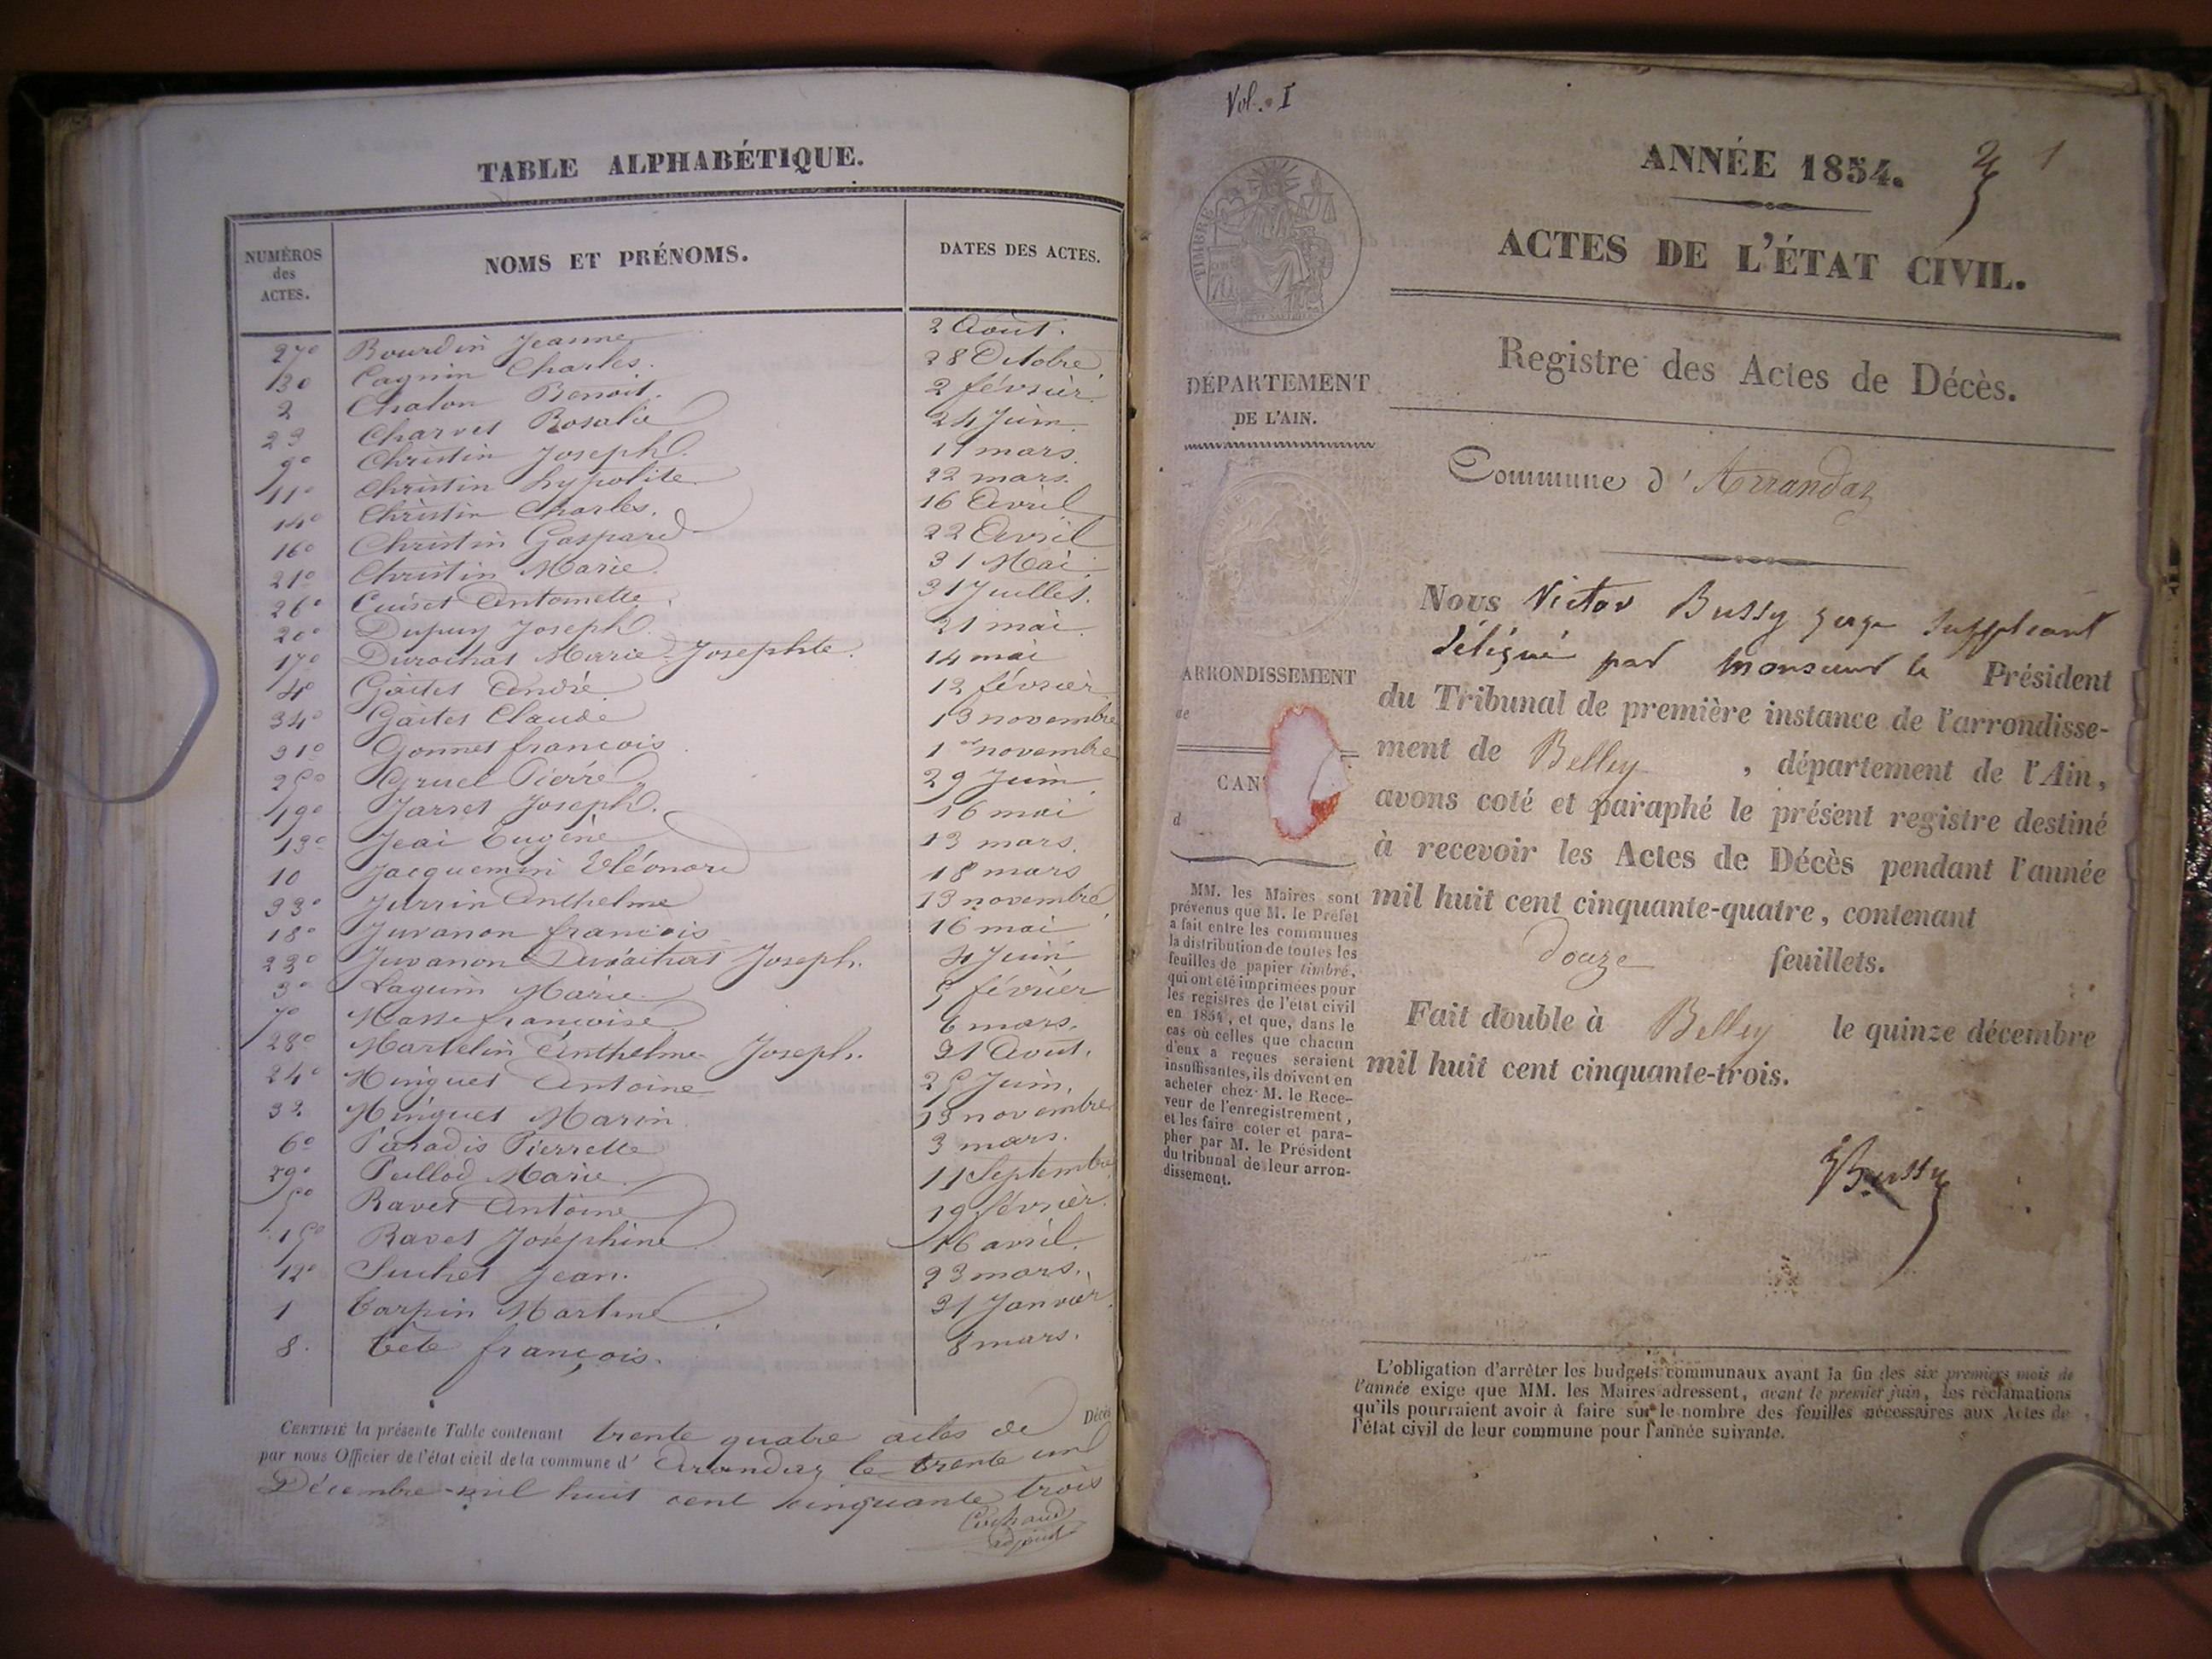 TABLE ALPHABÉTIQUE.
NUMÉROS des ACTES.
NOMS ET PRÉNOMS.
DATES DES ACTES.
27° Bourdin Jeanne 2 Août.
130 Cagnin Charles. 28 Octobre
2 Chalon Benoit. 2 février
23 Charvet Rosalie 24 Juin
9° Christin Joseph. 11 mars
11° Christin hypolite 22 mars.
14° Christin Charles. 16 Avril
16° Christin Gaspard 22 Avril
21° Christin Marie. 31 Mai
26° Cuiset Antoinette. 31 Juillet.
20° Dupuy Joseph. 21 mai
17° Durochat Marie-Josephte. 14 mai
4° Gaites André. 12 février
34° Gaites Claude 13 novembre
31° Gonnet françois. 1er novembre
25° Gruel Pierre 29 Juin
19° Jarret Joseph. 16 mai
13° Jeai Eugène 13 mars.
10 Jacquemin Eléonore 18 mars
33° Jurrin Anthelme 13 novembre
18° Juvanon françois 16 mai
22° Juvanon Durochat Joseph. 4 Juin
3° Laguin Marie. 5 février
7° Masse françoise 6 mars.
28° Martelin Anthelme Joseph. 31 Août.
24° Minguet Antoine 25 Juin.
32 Minguet Marin 13 novembre
6° Paradis Pierrette 3 mars.
29° Peillod Marie. 11 Septembre
5° Ravet Antoine 19 février.
15° Ravet Joséphine 16 avril.
12° Suchet Jean. 23 mars.
1 Tarpin Martine 31 Janvier.
8. Tete françois. 8 mars.
CERTIFIÉ la présente Table contenant trente quatre actes de Décès
par nous Officier de l'état civil de la commune d' Arandaz le trente un
Décembre mil huit cent cinquante trois
Cochaud
adjoint
Vol. I
ANNÉE 1854.
1
ACTES DE L'ÉTAT CIVIL.
Registre des Actes de Décès.
TIMBRE
DÉPARTEMENT
DE L'AIN.
Commune d'Arrandaz
Nous Victor Bussy juge suppléant
délégué par Monsieur le Président
du Tribunal de première instance de l'arrondisse-
ment de Belley, département de l'Ain,
avons coté et paraphé le présent registre destiné
à recevoir les Actes de Décès pendant l'année
mil huit cent cinquante-quatre, contenant
douze feuillets.
Fait double à Belley le quinze décembre
mil huit cent cinquante-trois.
VBussy
ARRONDISSEMENT
de
CAN
d
MM. les Maires sont
prévenus que M. le Préfet
a fait entre les communes
la distribution de toutes les
feuilles de papier timbré,
qui ont été imprimées pour
les registres de l'état civil
en 1854, et que, dans le
cas où celles que chacun
d'eux a reçues seraient
insuffisantes, ils doivent en
acheter chez M. le Rece-
veur de l'enregistrement,
et les faire coter et para-
pher par M. le Président
du tribunal de leur arron-
dissement.
L'obligation d'arrêter les budgets communaux avant la fin des six premiers mois de
l'année exige que MM. les Maires adressent, avant le premier juin, les réclamations
qu'ils pourraient avoir à faire sur le nombre des feuilles nécessaires aux Actes de
l'état civil de leur commune pour l'année suivante.